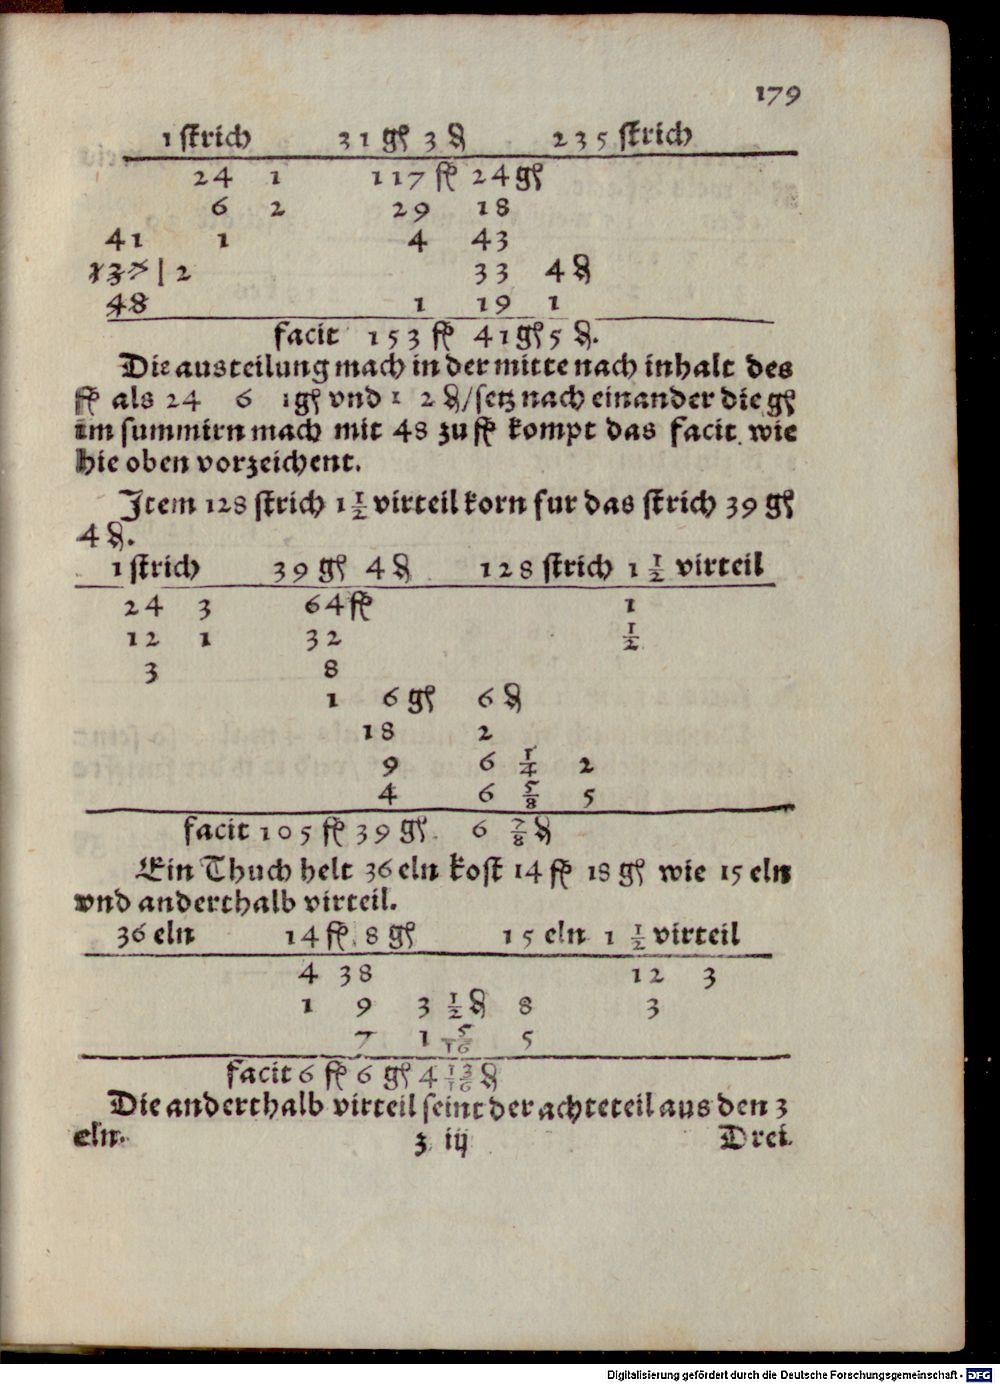 179
1 strich 31 gꝭ 3 ₰ 235 strich
24 1 117 ſꝭ 24 gꝭ
6 2 29 18
41 1 4 43
137 | 2 33 4 ₰
48 1 19 1
facit 153 ſꝭ 41 gꝭ 5 ₰.
Die austeilung mach in der mitte nach inhalt des
ſꝭ als 24 6 1 gꝭ vnd 1 2 ₰/ setz nach einander die gꝭ
im summirn mach mit 48 zu ſꝭ kompt das facit wie
hie oben vorzeichent.
Item 128 strich 1 1/2 virteil korn fur das strich 39 gꝭ
4 ₰.
1 strich 39 gꝭ 4 ₰ 128 strich 1 1/2 virteil
24 3 64 ſꝭ 1
12 1 32 1/2
3 8
1 6 gꝭ 6 ₰
18 2
9 6 1/4 2
4 6 5/8 5
facit 105 ſꝭ 39 gꝭ. 6 7/8 ₰
Ein Thuch helt 36 eln kost 14 ſꝭ 18 gꝭ wie 15 eln
vnd anderthalb virteil.
36 eln 14 ſꝭ 8 gꝭ 15 eln 1 1/2 virteil
4 38 12 3
1 9 3 1/2 ₰ 8 3
7 1 5/16 5
facit 6 ſꝭ 6 gꝭ 4 13/16 ₰
Die anderthalb virteil seint der achteteil aus den 3
eln. z iij Drei
Digitalisierung gefördert durch die Deutsche Forschungsgemeinschaft - DFG